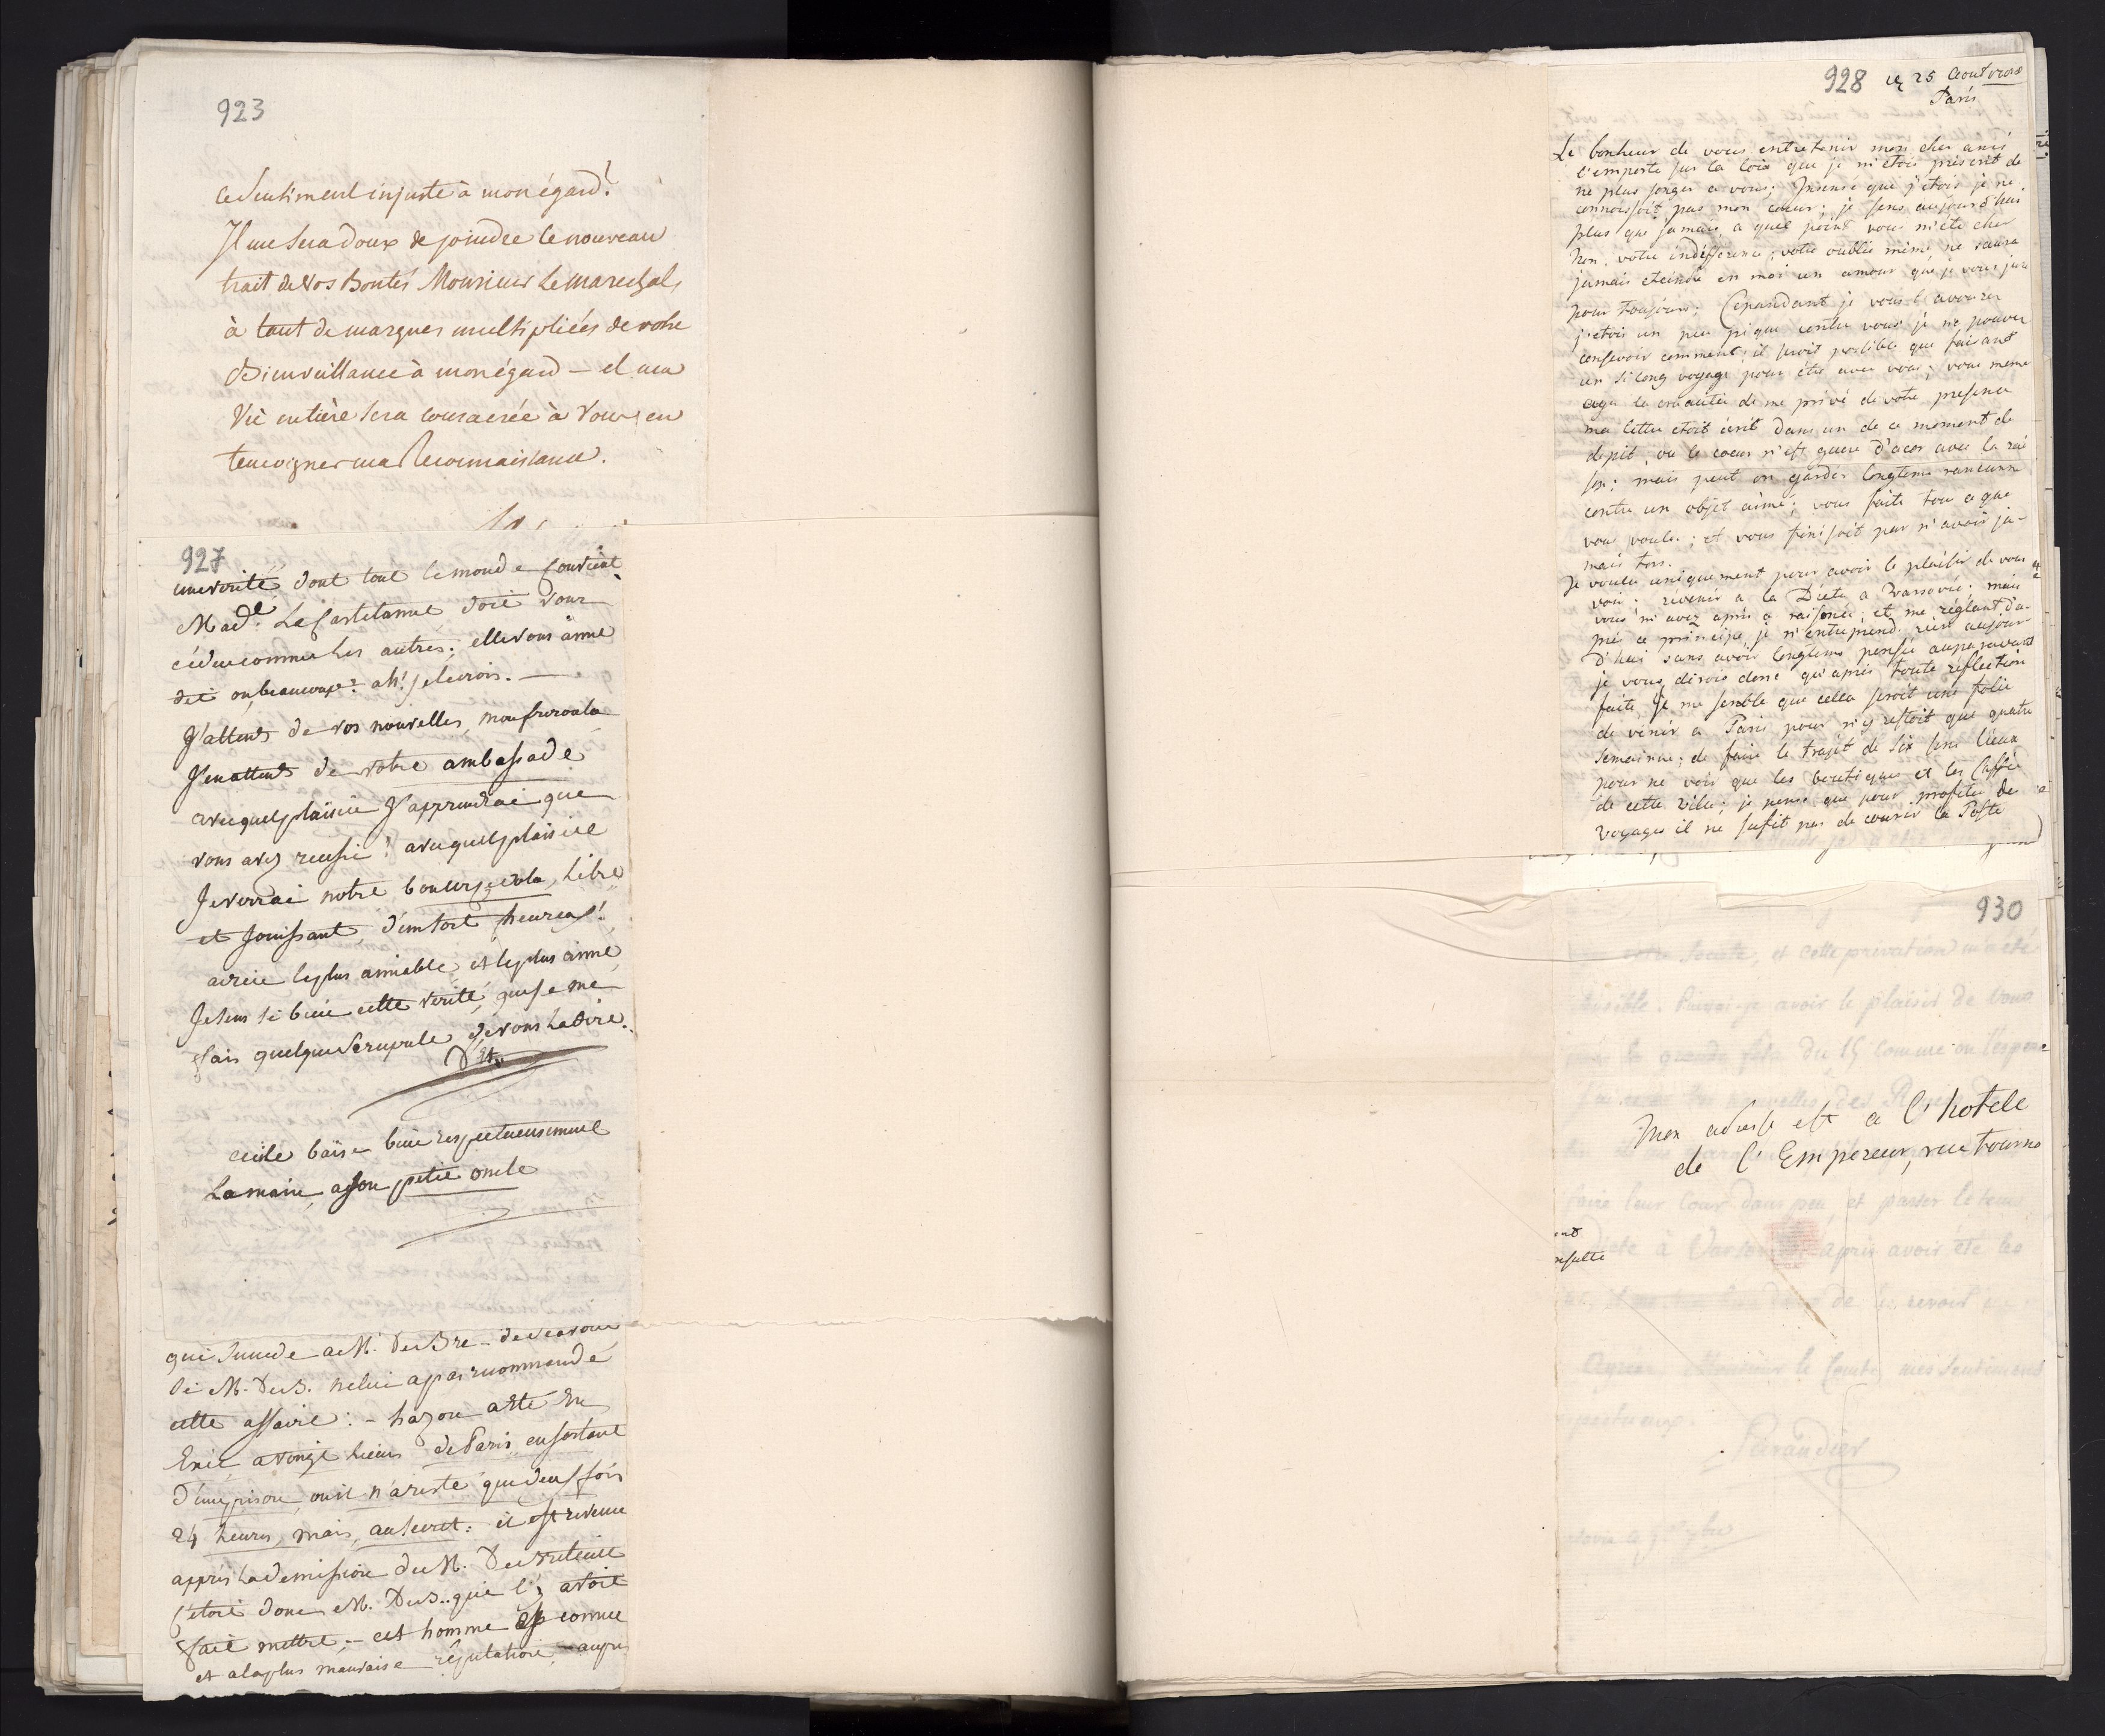 923
ce sentiment injuste à mon égard!
Il me sera doux de joindre ce nouveau
trait de vos Bontés Monsieur Le marechal,
à tant de marques multipliées de votre
Bienveillance à mon égard – et ma
Vie entière sera consacrée à vous en
temoigner ma Reconnaissance.
927
une verité dont tout le monde convient
Made. La Castelanne doit vous
céder comme les autres; elle vous aime
dit on, beaucoup? ah! je le crois. —
J'attens de vos nouvelles
J'en attens de votre ambassade
avec quel plaisir J'apprendrai que
vous avez reussi! avec quel plaisir
Je verrai notre
et Jouissant, d'un sort heureux!
le plus aimable et le plus aimé
Je sens si bien cette verité, que je me
fais quelque Scrupule de vous La dire.
cecile baise bien respectueusement
La main, a son petit oncle
qui succede a M.
si M. De B. ne lui a pas recommandé
cette affaire: –
Exil a vingt lieues de Paris, en sortant
d'une prison, ou il n'a resté que deux fois
24 heures, mais, au secret: il est revenu
après La demission du M. De Breteuil
c'etoit donc M. De B.. qui l'y avoit
fait mettre; – cet homme est connu
et a la plus mauvaise réputation, – aupres
928 ce 25 Aout
Paris
Le bonheur de vous entretenir mon cher amis
l'emporte sur la loix que je m'etois prescrit de
ne plus songer a vous; Insensé que j'etois je ne
connoissoit pas mon cœur; je sens aujourd'hui
plus que jamais, a quel point vous m'ête cher
Non, votre indifference, votre oublie même, ne saura
jamais eteindre en moi un amour que je vous jure
pour toujours; Cepandant je vous l'avourer
j'etois un peu piqué contre vous je ne pouver
consevoir comment, il seroit possible que faisant
un si long voyage pour être avec vous; vous meme
aye la cruautée de me privé de votre presence
ma lettre etoit écrit dans un de ce moment de
depit, ou le cœur n'est guere d'acor avec la rai
son; mais peut on garder longtems rancunne
contre un objet aimé; vous faite tou ce que
vous voulu; et vous finisoit par n'avoir ja-
mais tors.
Je voulu uniquement pour avoir le plaisir de vous
voir, revenir a la Diete a Warsovie; mais
vous m'avez apris a raisoner; et me réglant d'a-
pré ce principe, je n'entreprend rien aujour
d'hui sans avoir longtems pensée auparavant
je vous dirois donc qu'apres toute reflection
faite, Il me semble que cella seroit une folie
de venir a Paris pour n'y restoit que quatre
semainne; de faire le trajet de six sens lieux
pour ne voir que les boutique et les Caffée
de cette ville; je pense que pour profiter de
voyages il ne sufit pas de courir la Poste
930
votre société, et cette privation m'a été
sensible. Puissai-je avoir le plaisir de vous
la grande fête du 15 comme on l'espere
nouvelles des
Mon adresse est a l'hotele
de l'Empereur, rue tourno
faire leur cour dans peu, et passer le tems
Diete à après avoir été les
de les revoir
resulte
Monsieur le Comte, mes sentimens